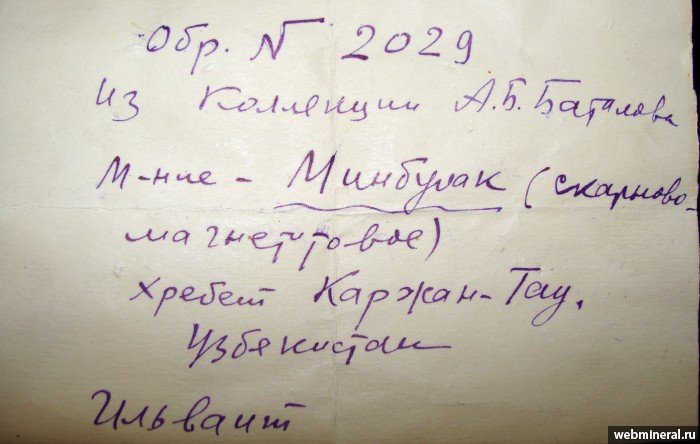 Обр. N 2029
из коллекции А.Б. Баталова
М-ние - Минбулак (скарново-
магнетитовое)
хребет Каржан-Тау.
Узбекистан
Ильваит
webmineral.ru